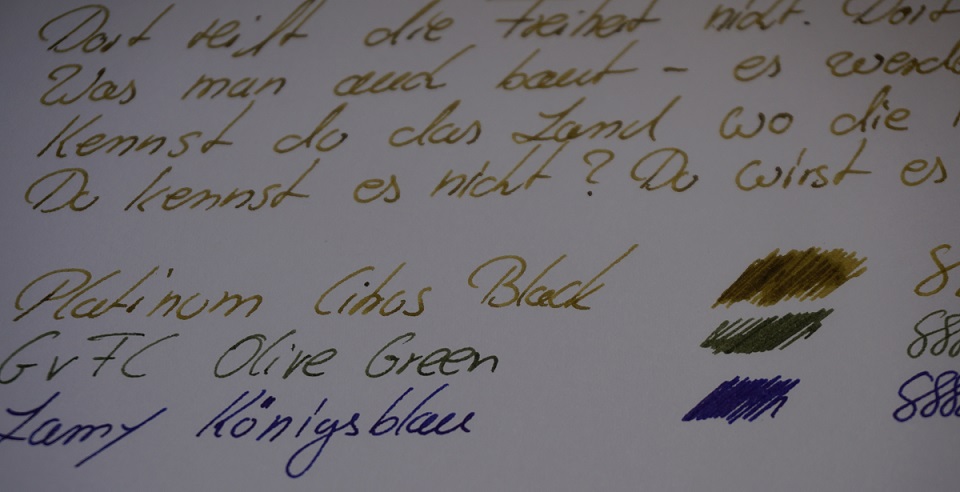 Dort reift die Freiheit nicht. Dort
Was man auch baut – es werde
Kennst du das Land wo die
Du kennst es nicht? Du wirst es
Platinum Citrus Black
GvFC Olive Green
Lamy Königsblau